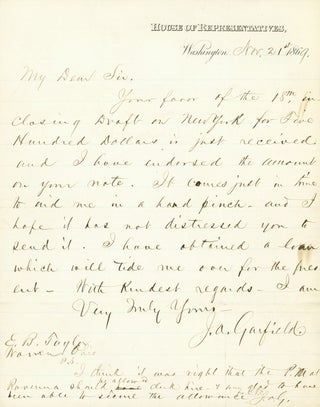 House of Representatives,
Washington Nov. 21st 1869.
My Dear Sir.
Your favor of the 18th, in
closing Draft on New York for Five
Hundred Dollars is just received
and I have endorsed the amount
on your note. It comes just in time
to aid me in a hard pinch. and I
hope it has not distressed you to
send it. I have obtained a loan
which will tide me over for the pres
ent - With Kindest regards - I am
Very Truly Yours
J. A. Garfield
E. B. Taylor
Warren
P.S.
I think it was right that the P.M. at
Ravenna should allow clerk hire - & am glad to have
been able to secure the allowance